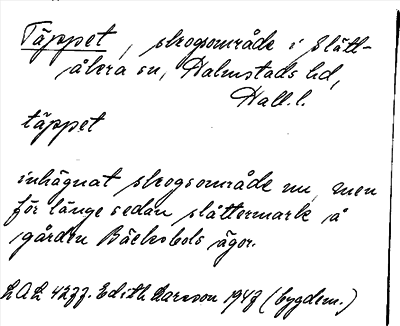 Täppet, skogsområde i Slätt-
åkra sn, Halmstads hd,
Hall. l.
täppet
inhägnat skogsområde nu, men
för länge sedan slåttermark å
gården Bäckabols ägor.
LAL 4277. Edith Larsson 1947 (bygdem.)